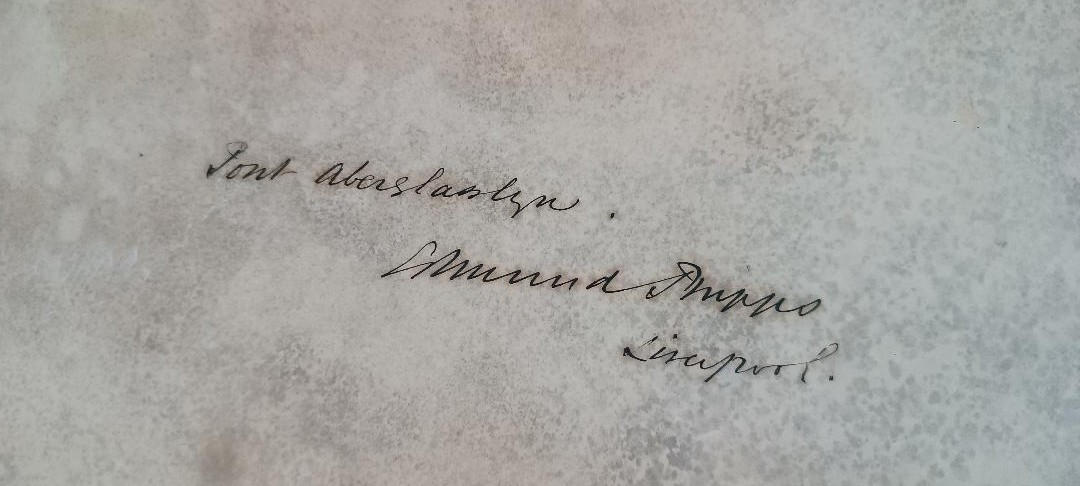 Pont Aberglaslyn.
Edmund Phipps
Liverpool.